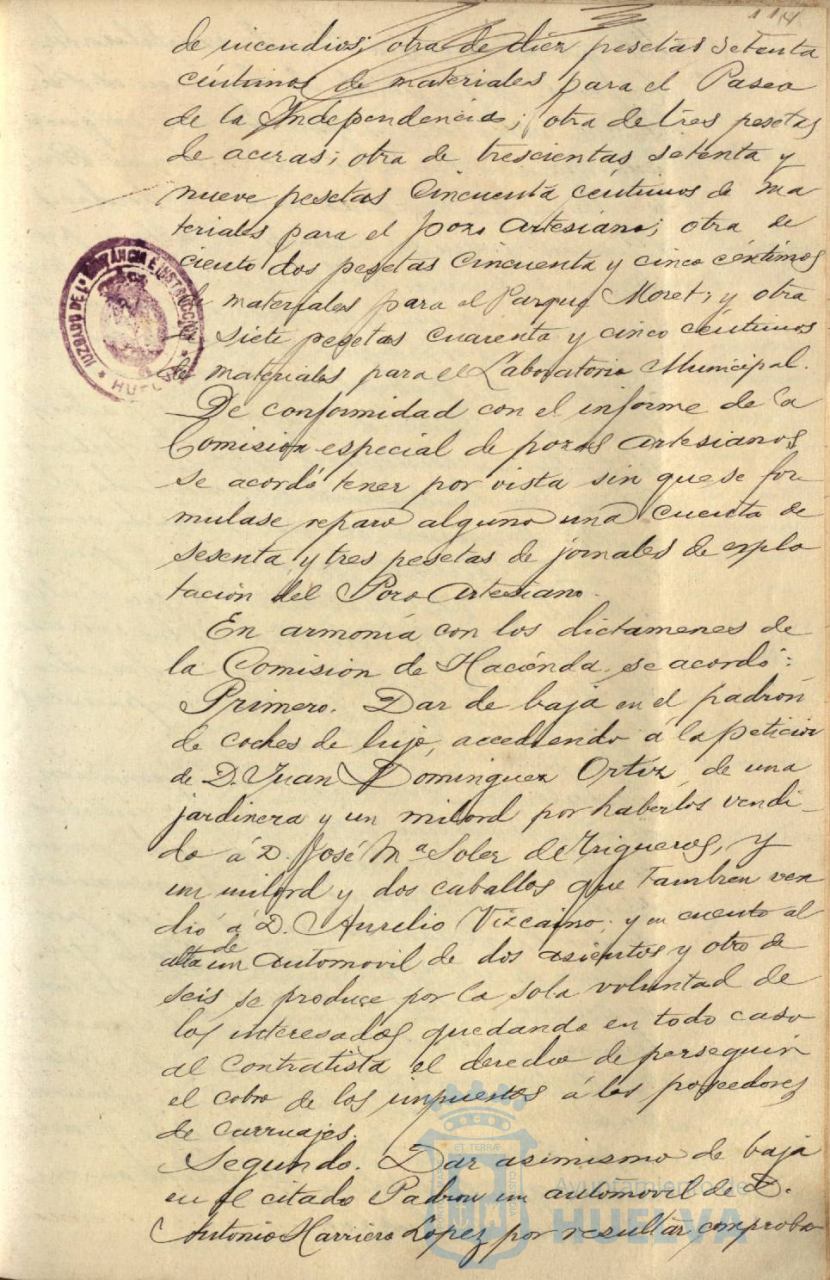 114.
de incendios; otra de diez pesetas setenta
céntimos de materiales para el Paseo
de la Independencia; otra de tres pesetas
de aceras; otra de trescientas setenta y
nueve pesetas Cincuenta céntimos de ma
teriales para el pozo Artesiano; otra de
ciento dos pesetas Cincuenta y cinco céntimos
de materiales para el Parque Moret; y otra
siete pesetas cuarenta y cinco céntimos
de materiales para el Laboratorio Municipal.
De conformidad con el informe de la
Comisión especial de pozos Artesianos
se acordó tener por vista sin que se for
mulase reparo alguno una cuenta de
sesenta y tres pesetas de jornales de explo
tación del Pozo Artesiano.
En armonía con los dictamenes de
la Comisión de Hacienda se acordó:
Primero. Dar de baja en el padrón
de coches de lujo, accediendo á la petición
de D. Juan Dominguez Ortiz, de una
jardinera y un milord por haberlos vendi-
do á D. José Mª Soler de Trigueros, y
un milord y dos caballos que tambien ven
dió á D. Aurelio Vizcaino; y en cuento al
alta de un Automovil de dos asientos y otro de
seis se produce por la sola voluntad de
los interesados quedando en todo caso
al Contratista el derecho de perseguir
el cobro de los impuestos á los poseedores
de carruajes.
Segundo. Dar asimismo de baja
en el citado Padron un automovil de D.
Antonio Marriero Lopez por resultar comproba
JUZGADO DE 1ª INSTANCIA E INSTRUCCIÓN
* HUELVA *
Ayuntamiento de
HUELVA